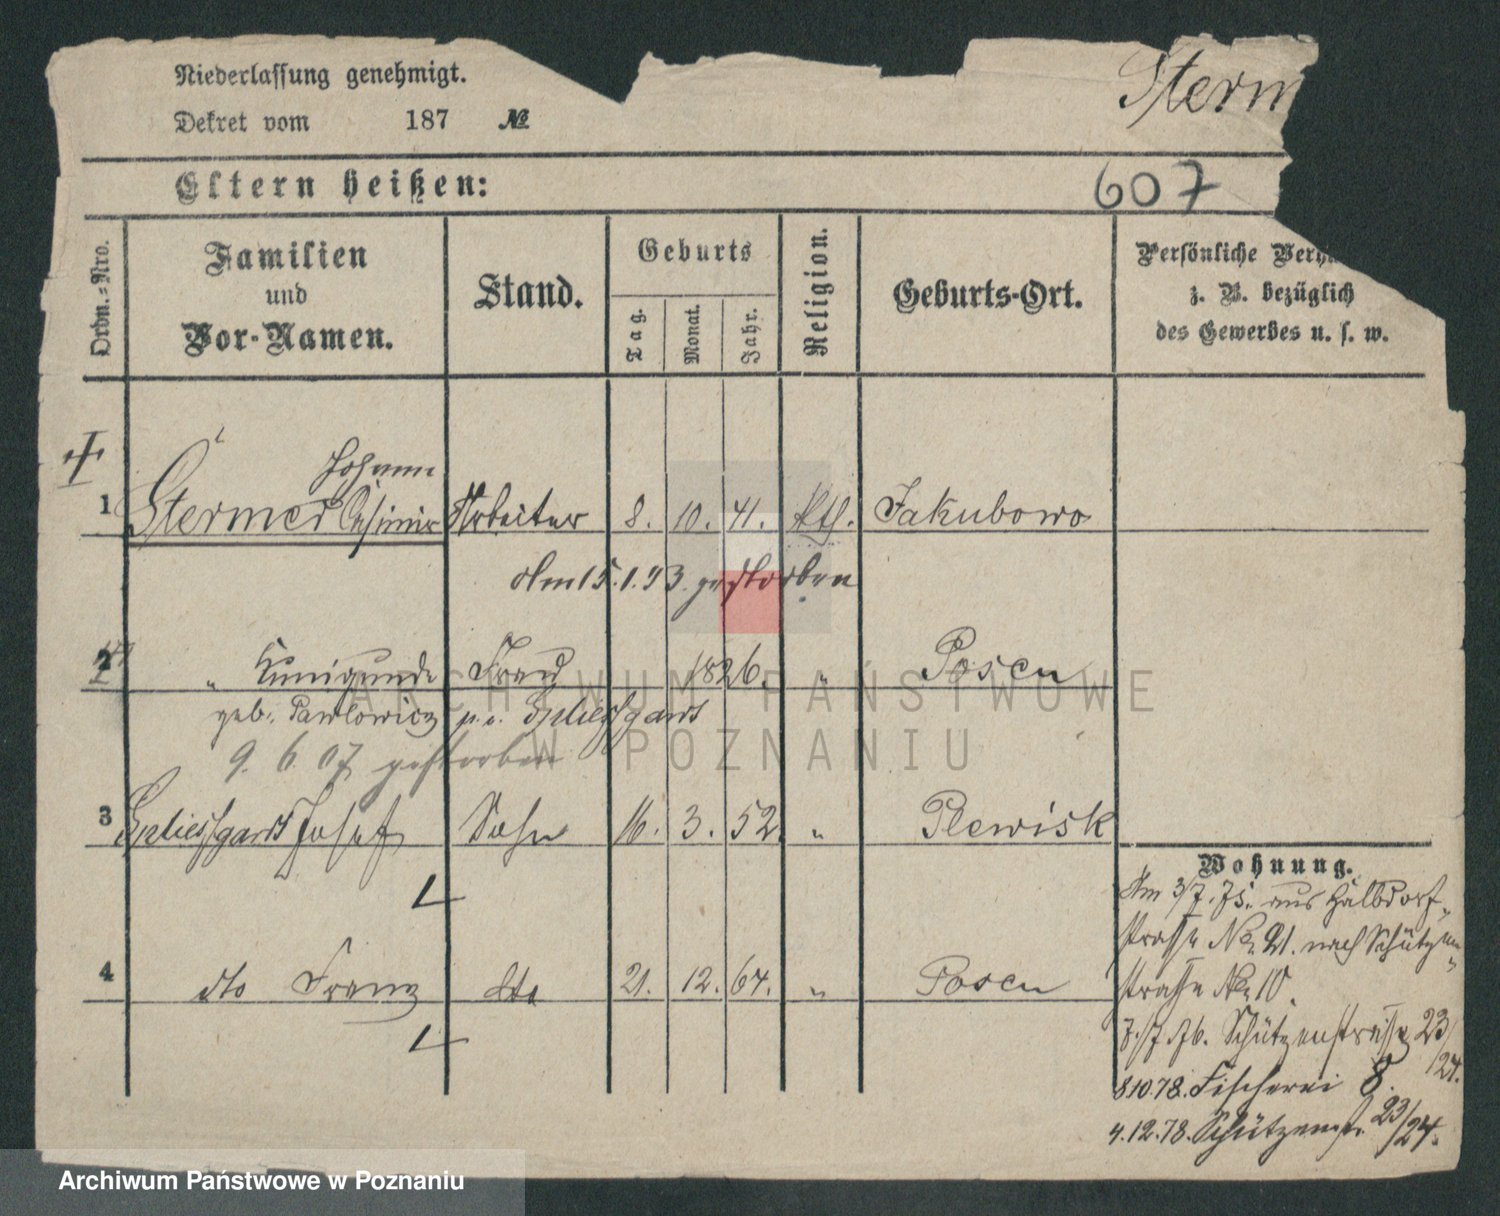 Niederlassung genehmigt.
Sterm
Dekret vom 187 №
Eltern heißen:
607
Ordn.-Nro.
Familien
und
Vor-Namen.
Stand.
Geburts
Tag.
Monat.
Jahr.
Religion.
Geburts-Ort.
Persönliche Verh
z. B. bezüglich
des Gewerbes u. s. w.
Johann
1 Stermer Casimir Arbeiter 8. 10. 41. kth. Jakubowo
Am 15.1.93. gestorben
2 " Kunigunde Frau 1826. " Posen
geb. Pawlowicz Spliessgardt
9. 6. 07 gestorben
3 Spliessgardt Josef Sohn 16. 3. 52. " Plewisk
Wohnung.
Am 3/7. 75. aus Halbdorf-
strasse No. 21. nach Schützen-
4 dto Franz dto 21. 12. 64. " Posen
strasse No. 10.
7./7. 76. Schützenstrasse 23/
24.
8 10. 78. Fischerei 8.
4. 12. 78. Schützenstr. 23/24.
ARCHIWUM PAŃSTWOWE
W POZNANIU
Archiwum Państwowe w Poznaniu